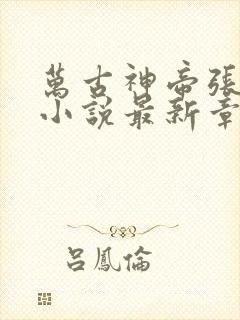 萬古神帝張
小說最新章
呂鳳倫